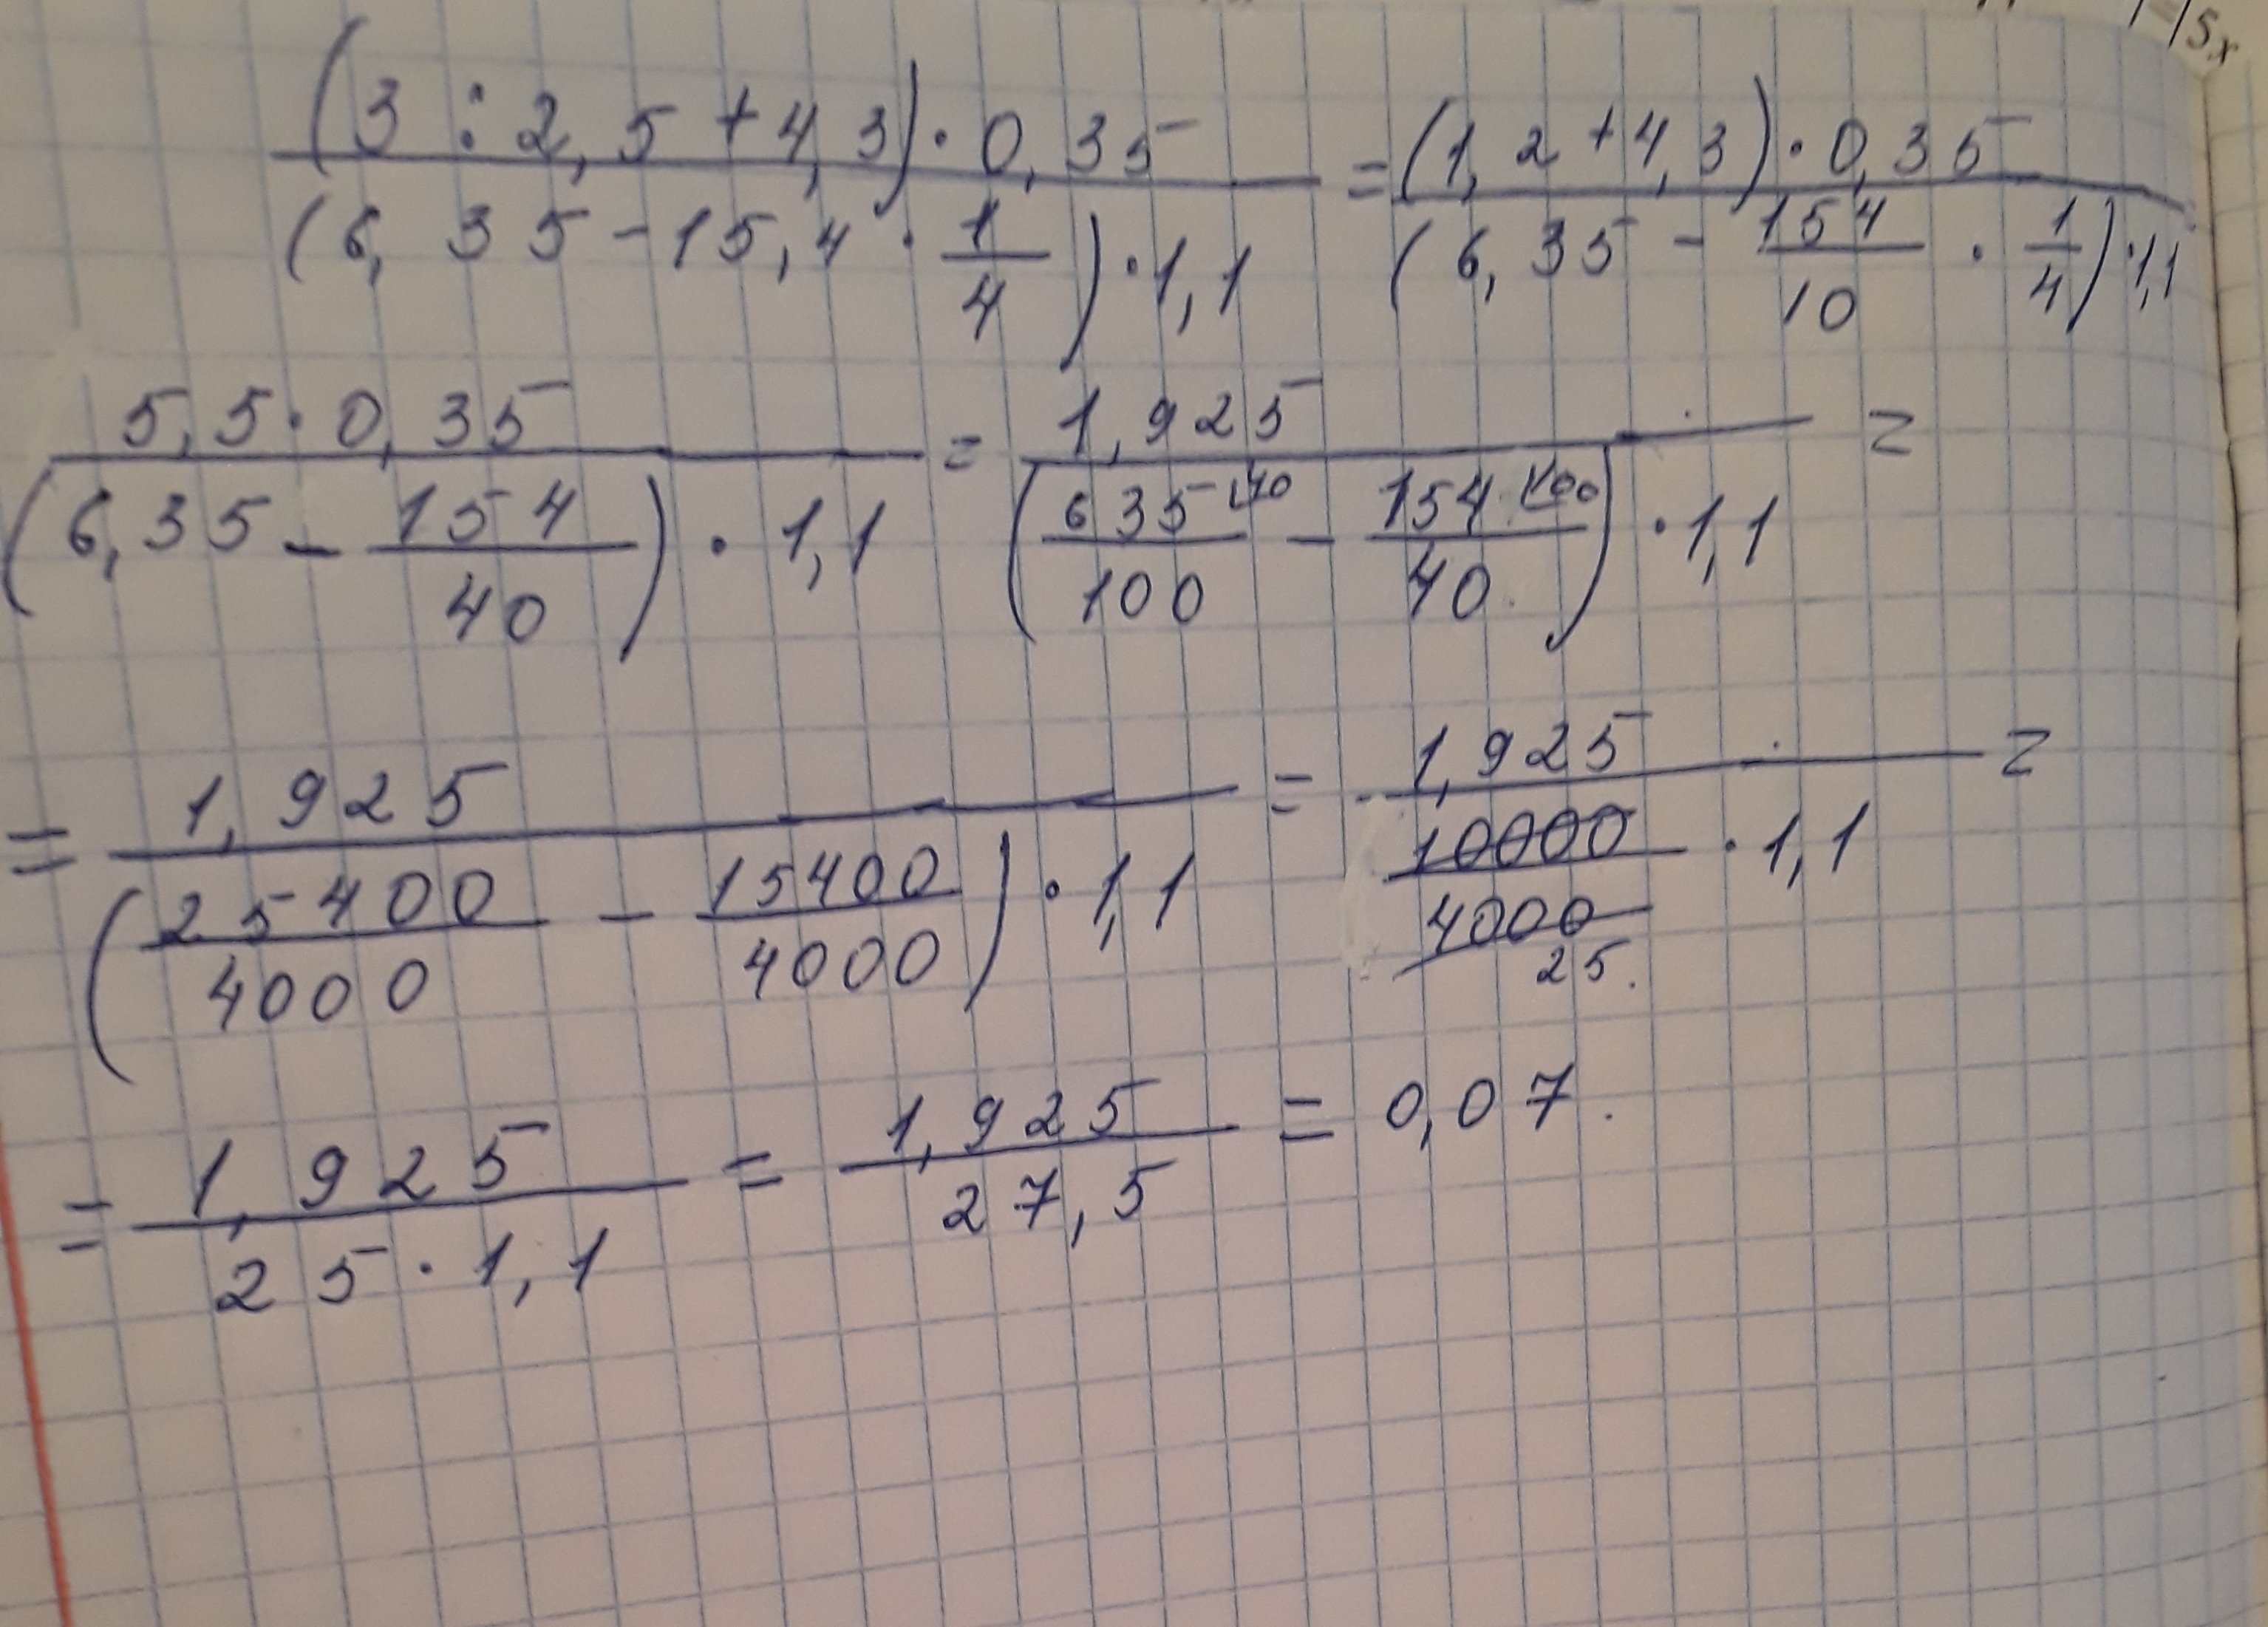 15x
(3 : 2,5 + 4,3) · 0,35 / (6,35 - 15,4 · 1/4) · 1,1 = (1,2 + 4,3) · 0,35 / (6,35 - 154/10 · 1/4) · 1,1
5,5 · 0,35 / (6,35 - 154/40) · 1,1 = 1,925 / (635 \40/100 - 154 \100/40) · 1,1 =
= 1,925 / (25400/4000 - 15400/4000) · 1,1 = 1,925 / 10000/4000 25 · 1,1 =
= 1,925 / 25 · 1,1 = 1,925 / 27,5 = 0,07.